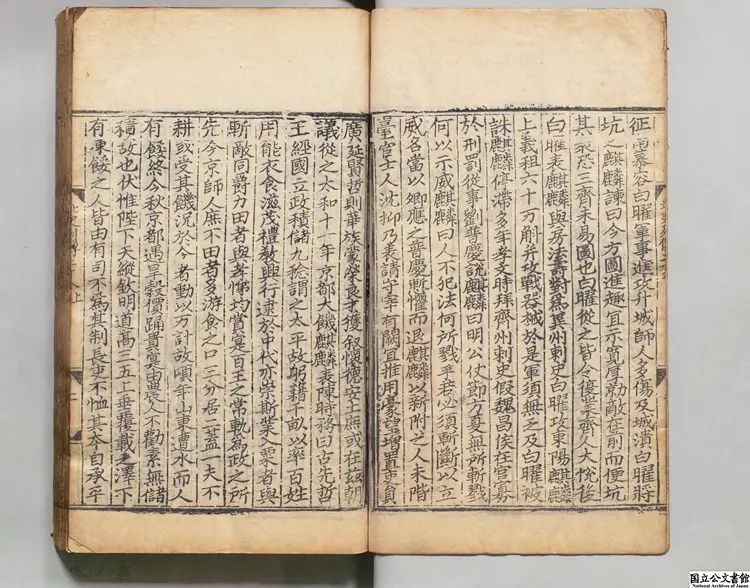 征南慕容白曜軍事進攻升城師人多傷及城潰白曜將
坑之麒麟諫曰今方圖進趣宜示寛厚勍敵在前而便坑
其衆恐三齊未易圖也白曜從之皆令復業齊人大悦後
白曜表麒麟與房法壽對爲冀州刺史白曜攻東陽麒麟
上義租六十万斛并攻戰器械於是軍須無乏及白曜被
誅麒麟停滯多年孝文時拜齊州刺史假魏昌侯在官寡
於刑罰從事劉普慶說麒麟曰明公仗節方夏無所斬戮
何以示威麒麟曰人不犯法何所戮乎若必須斬斷以立
威名當以卿應之普慶慙懼而退麒麟以新附之人未階
臺宦士人沈抑乃表請守宰有闕宜推用豪望增置吏員
廣延賢哲則華族蒙榮良才獲叙懷德安土庶或在兹朝
議從之太和十一年京都大饑麒麟表陳時務曰古先哲
王經國立政積儲九稔謂之太平故躬籍千畝以率百姓
用能衣食滋茂禮教興行逮於中代亦崇斯業入粟者與
斬敵同爵力田者與孝悌均賞寔百王之常軌爲政之所
先今京師人庶不田者多游食之口三分居二蓋一夫不
耕或受其饑況於今者動以万計故頃年山東遭水而人
有餒終今秋京都遇旱穀價踊貴寔由農人不勸素無儲
積故也伏惟陛下天縱欽明道高三五上垂覆載之澤下
有凍餒之人皆由有司不爲其制長吏不恤其本自承平
国立公文書館
National Archives of Japan